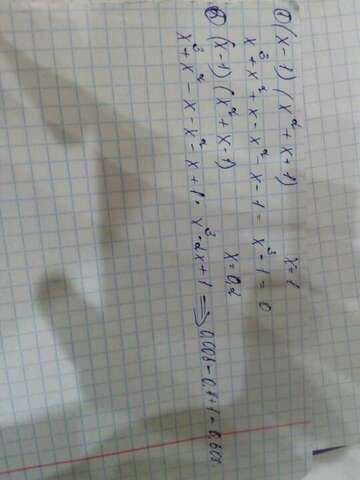 ① (x-1) (x²+x+1) x=1
x³+x²+x-x²-x-1 = x³-1 = 0
② (x-1) (x²+x-1) x=0,2
x³+x²-x-x²-x+1 = x³-2x+1 ⇒ 0,008-0,4+1=0,608